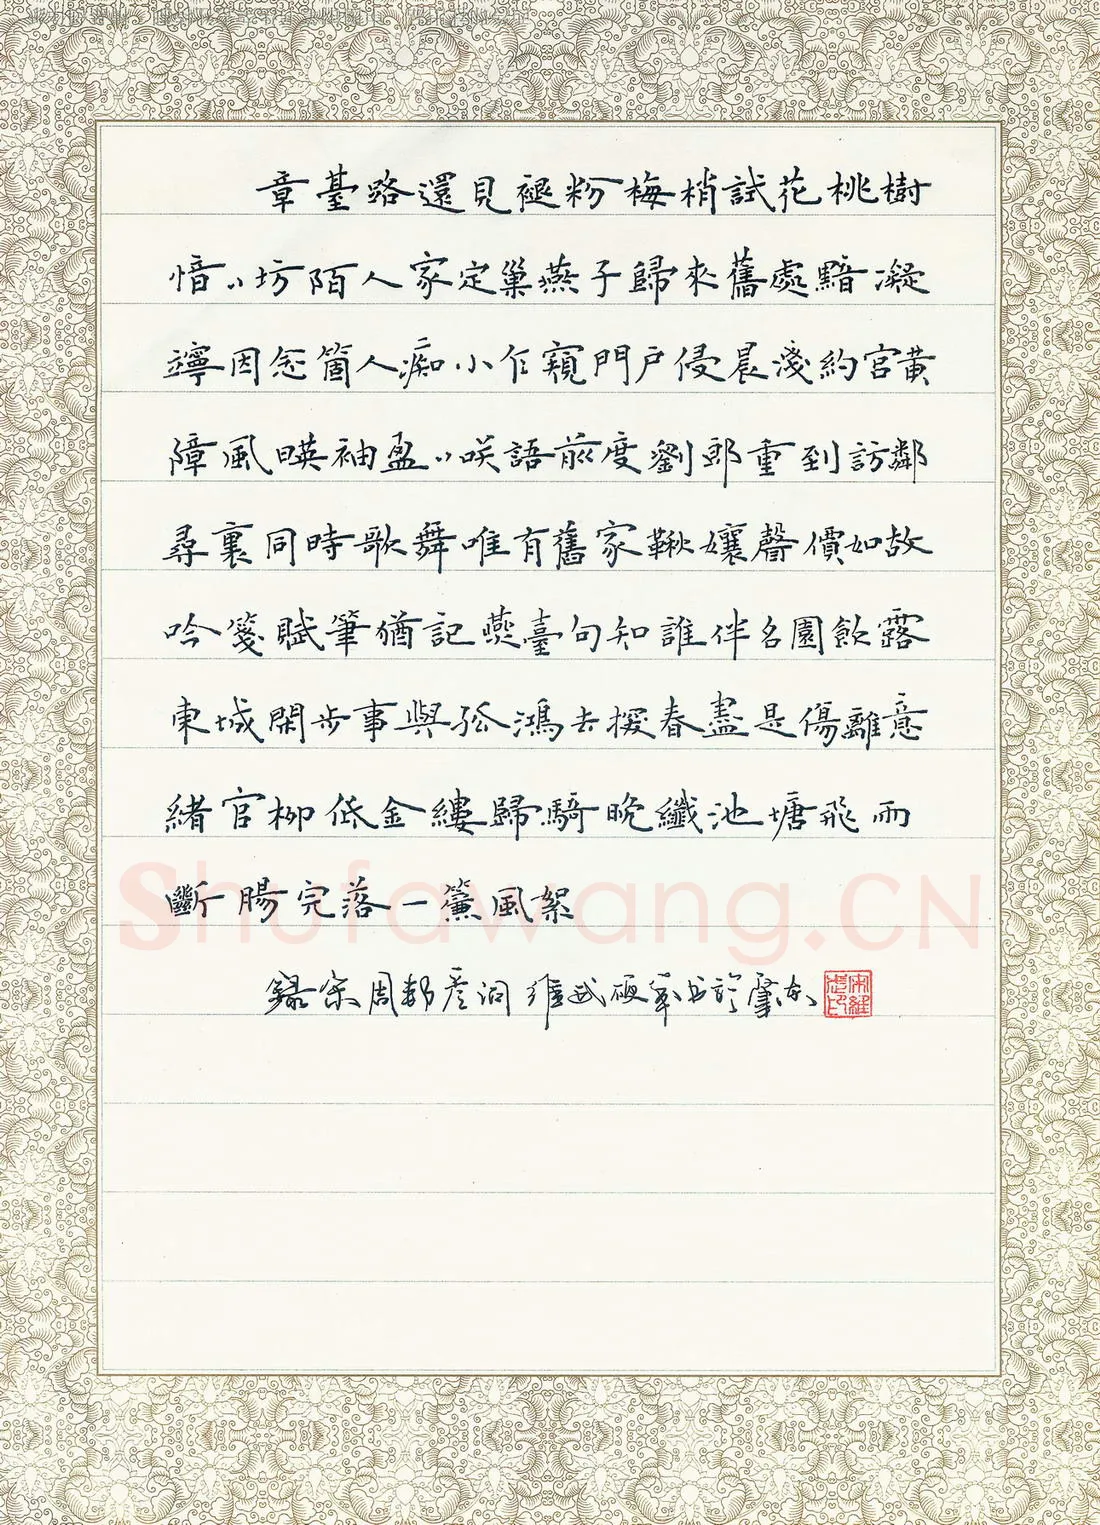 章臺路還見褪粉梅梢試花桃樹
愔〻坊陌人家定巢燕子歸來舊處黯凝
竚因念箇人痴小乍窺門戶侵晨淺約宮黃
障風暎袖盈〻咲語前度劉郎重到訪鄰
尋裏同時歌舞唯有舊家鞦孃聲價如故
吟箋賦筆猶記燕臺句知誰伴名園飲露
東城閑步事與孤鴻去探春盡是傷離意
緒官柳低金縷歸騎晚纖池塘飛雨
斷腸完落一簾風絮
錄宋周邦彥詞維武硬筆書於肇東
Shufawang.CN